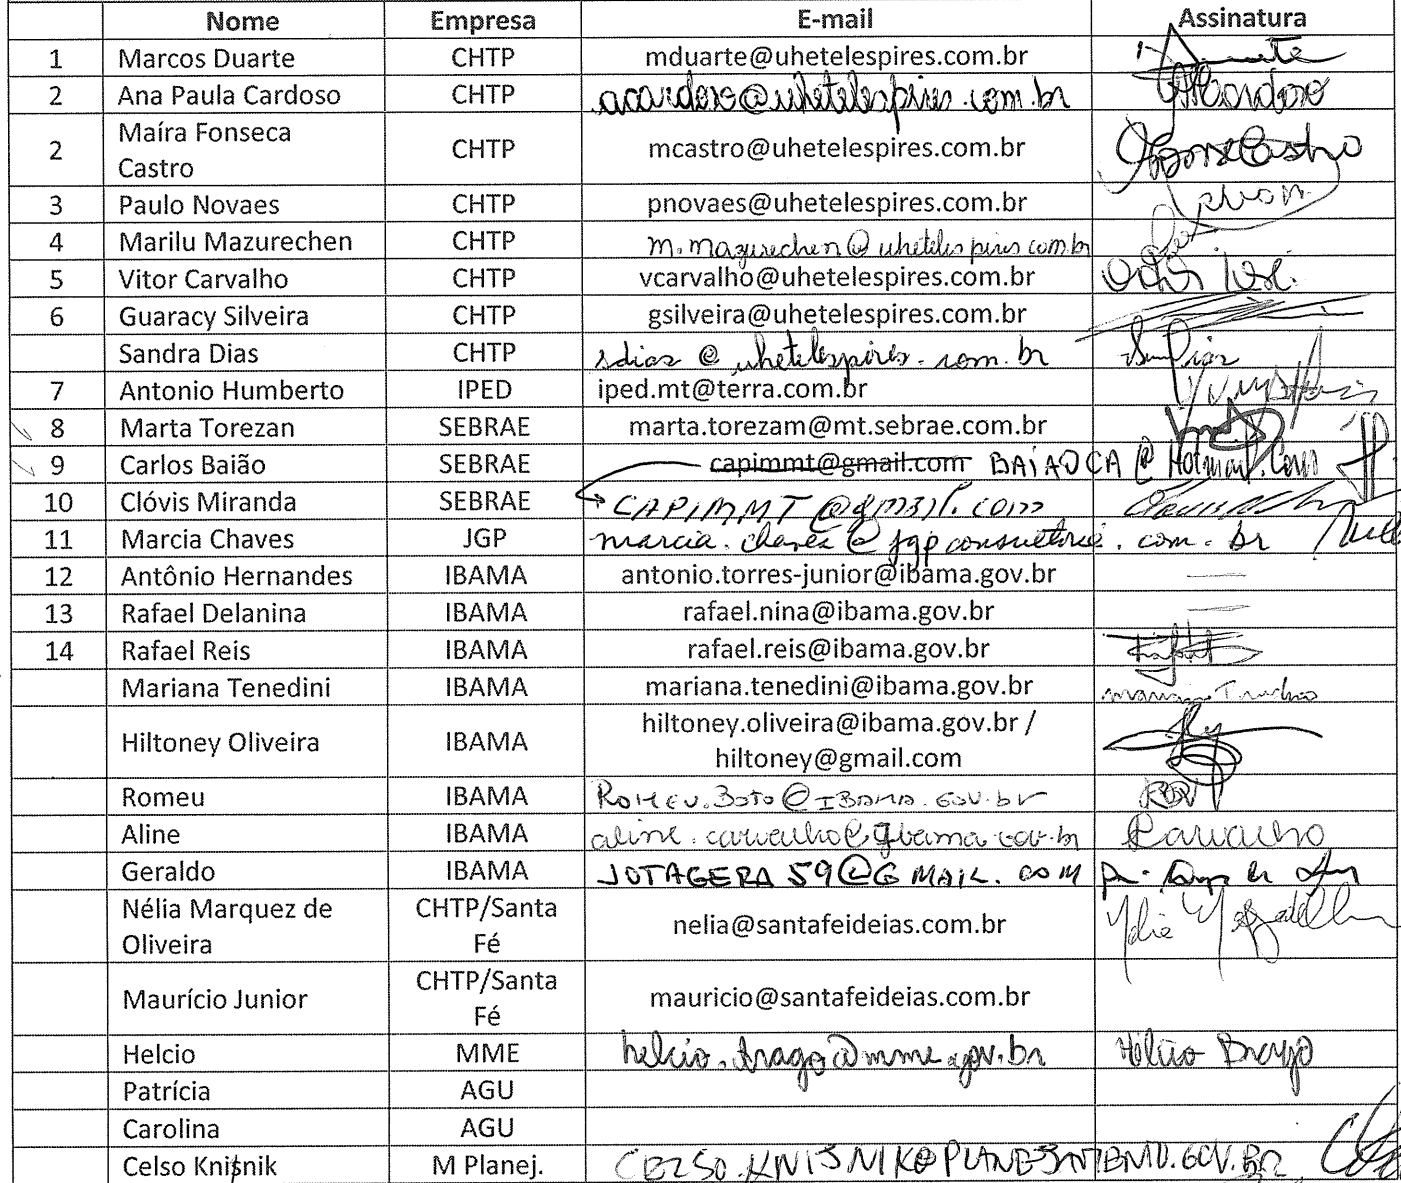 Nome Empresa E-mail Assinatura
1 Marcos Duarte CHTP mduarte@uhetelespires.com.br
2 Ana Paula Cardoso CHTP acardoso@uhetelespires.com.br
2 Maíra Fonseca Castro CHTP mcastro@uhetelespires.com.br
3 Paulo Novaes CHTP pnovaes@uhetelespires.com.br
4 Marilu Mazurechen CHTP m.mazurechen@uhetelespires.com.br
5 Vitor Carvalho CHTP vcarvalho@uhetelespires.com.br
6 Guaracy Silveira CHTP gsilveira@uhetelespires.com.br
Sandra Dias CHTP sdias@uhetelespires.com.br
7 Antonio Humberto IPED iped.mt@terra.com.br
8 Marta Torezan SEBRAE marta.torezam@mt.sebrae.com.br
9 Carlos Baião SEBRAE capimmt@gmail.com BAIAOCA@Hotmail.Com
10 Clóvis Miranda SEBRAE CAPIMMT@gmail.com
11 Marcia Chaves JGP marcia.chaves@jgpconsultoria.com.br
12 Antônio Hernandes IBAMA antonio.torres-junior@ibama.gov.br —
13 Rafael Delanina IBAMA rafael.nina@ibama.gov.br —
14 Rafael Reis IBAMA rafael.reis@ibama.gov.br
Mariana Tenedini IBAMA mariana.tenedini@ibama.gov.br
Hiltoney Oliveira IBAMA hiltoney.oliveira@ibama.gov.br /
hiltoney@gmail.com
Romeu IBAMA ROMEU.BOTO@IBAMA.GOV.br
Aline IBAMA aline.carvalho@ibama.gov.br Carvalho
Geraldo IBAMA JOTAGERA59@GMAIL.COM
Nélia Marquez de Oliveira CHTP/Santa Fé nelia@santafeideias.com.br
Maurício Junior CHTP/Santa Fé mauricio@santafeideias.com.br
Helcio MME helcio.brago@mme.gov.br Helcio Brago
Patrícia AGU
Carolina AGU
Celso Knisnik M Planej. CELSO.KNISNIK@PLANEJAMENTO.GOV.BR